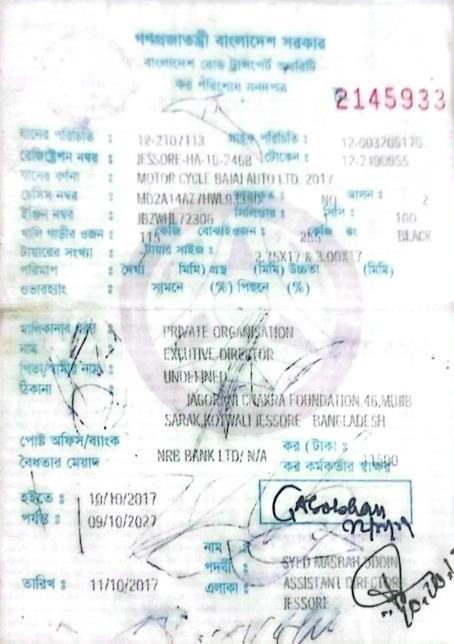 গণপ্রজাতন্ত্রী বাংলাদেশ সরকার
বাংলাদেশ রোড ট্রান্সপোর্ট অথরিটি
কর পরিশোধ সনদপত্র
2145933
যানের পরিচিতি : 12-003705170
রেজিষ্ট্রেশন নম্বর : JESSORE-HA-16-2468 টোকেন : 12-2490955
যানের বর্ণনা : MOTOR CYCLE BAJAJ AUTO LTD. 2017
চেসিস নম্বর : NO আসন : 2
ইঞ্জিন নম্বর : JBZWHL72306 সিলিন্ডার : সিসি : 100
খালি গাড়ীর ওজন : 115 কেজি বোঝাইওজন : 255 কেজি রং BLACK
টায়ারের সংখ্যা : 2 টায়ার সাইজ : 2.75X17 & 3.00X17
পরিমাপ : দৈর্ঘ্য (মিমি) প্রস্থ (মিমি) উচ্চতা (মিমি)
ওভারহ্যাং : সামনে (%) পিছনে (%)
মালিকানার : PRIVATE ORGANISATION
নাম : EXCUTIVE DIRECTOR
পিতা/স্বামীর নাম : UNDEFINED
ঠিকানা : CHAKRA FOUNDATION,46,MUJIB
SARAK,KOTWALI JESSORE BANGLADESH
পোষ্ট অফিস/ব্যাংক NRB BANK LTD/ N/A কর (টাকা) :
বৈধতার মেয়াদ কর কর্মকর্তার স্বাক্ষর
হইতে : 10/10/2017
পর্যন্ত : 09/10/2027
নাম :
পদবী : SYED MASBAH UDDIN
তারিখ : 11/10/2017 এলাকা : ASSISTANT DIRECTOR
JESSORE